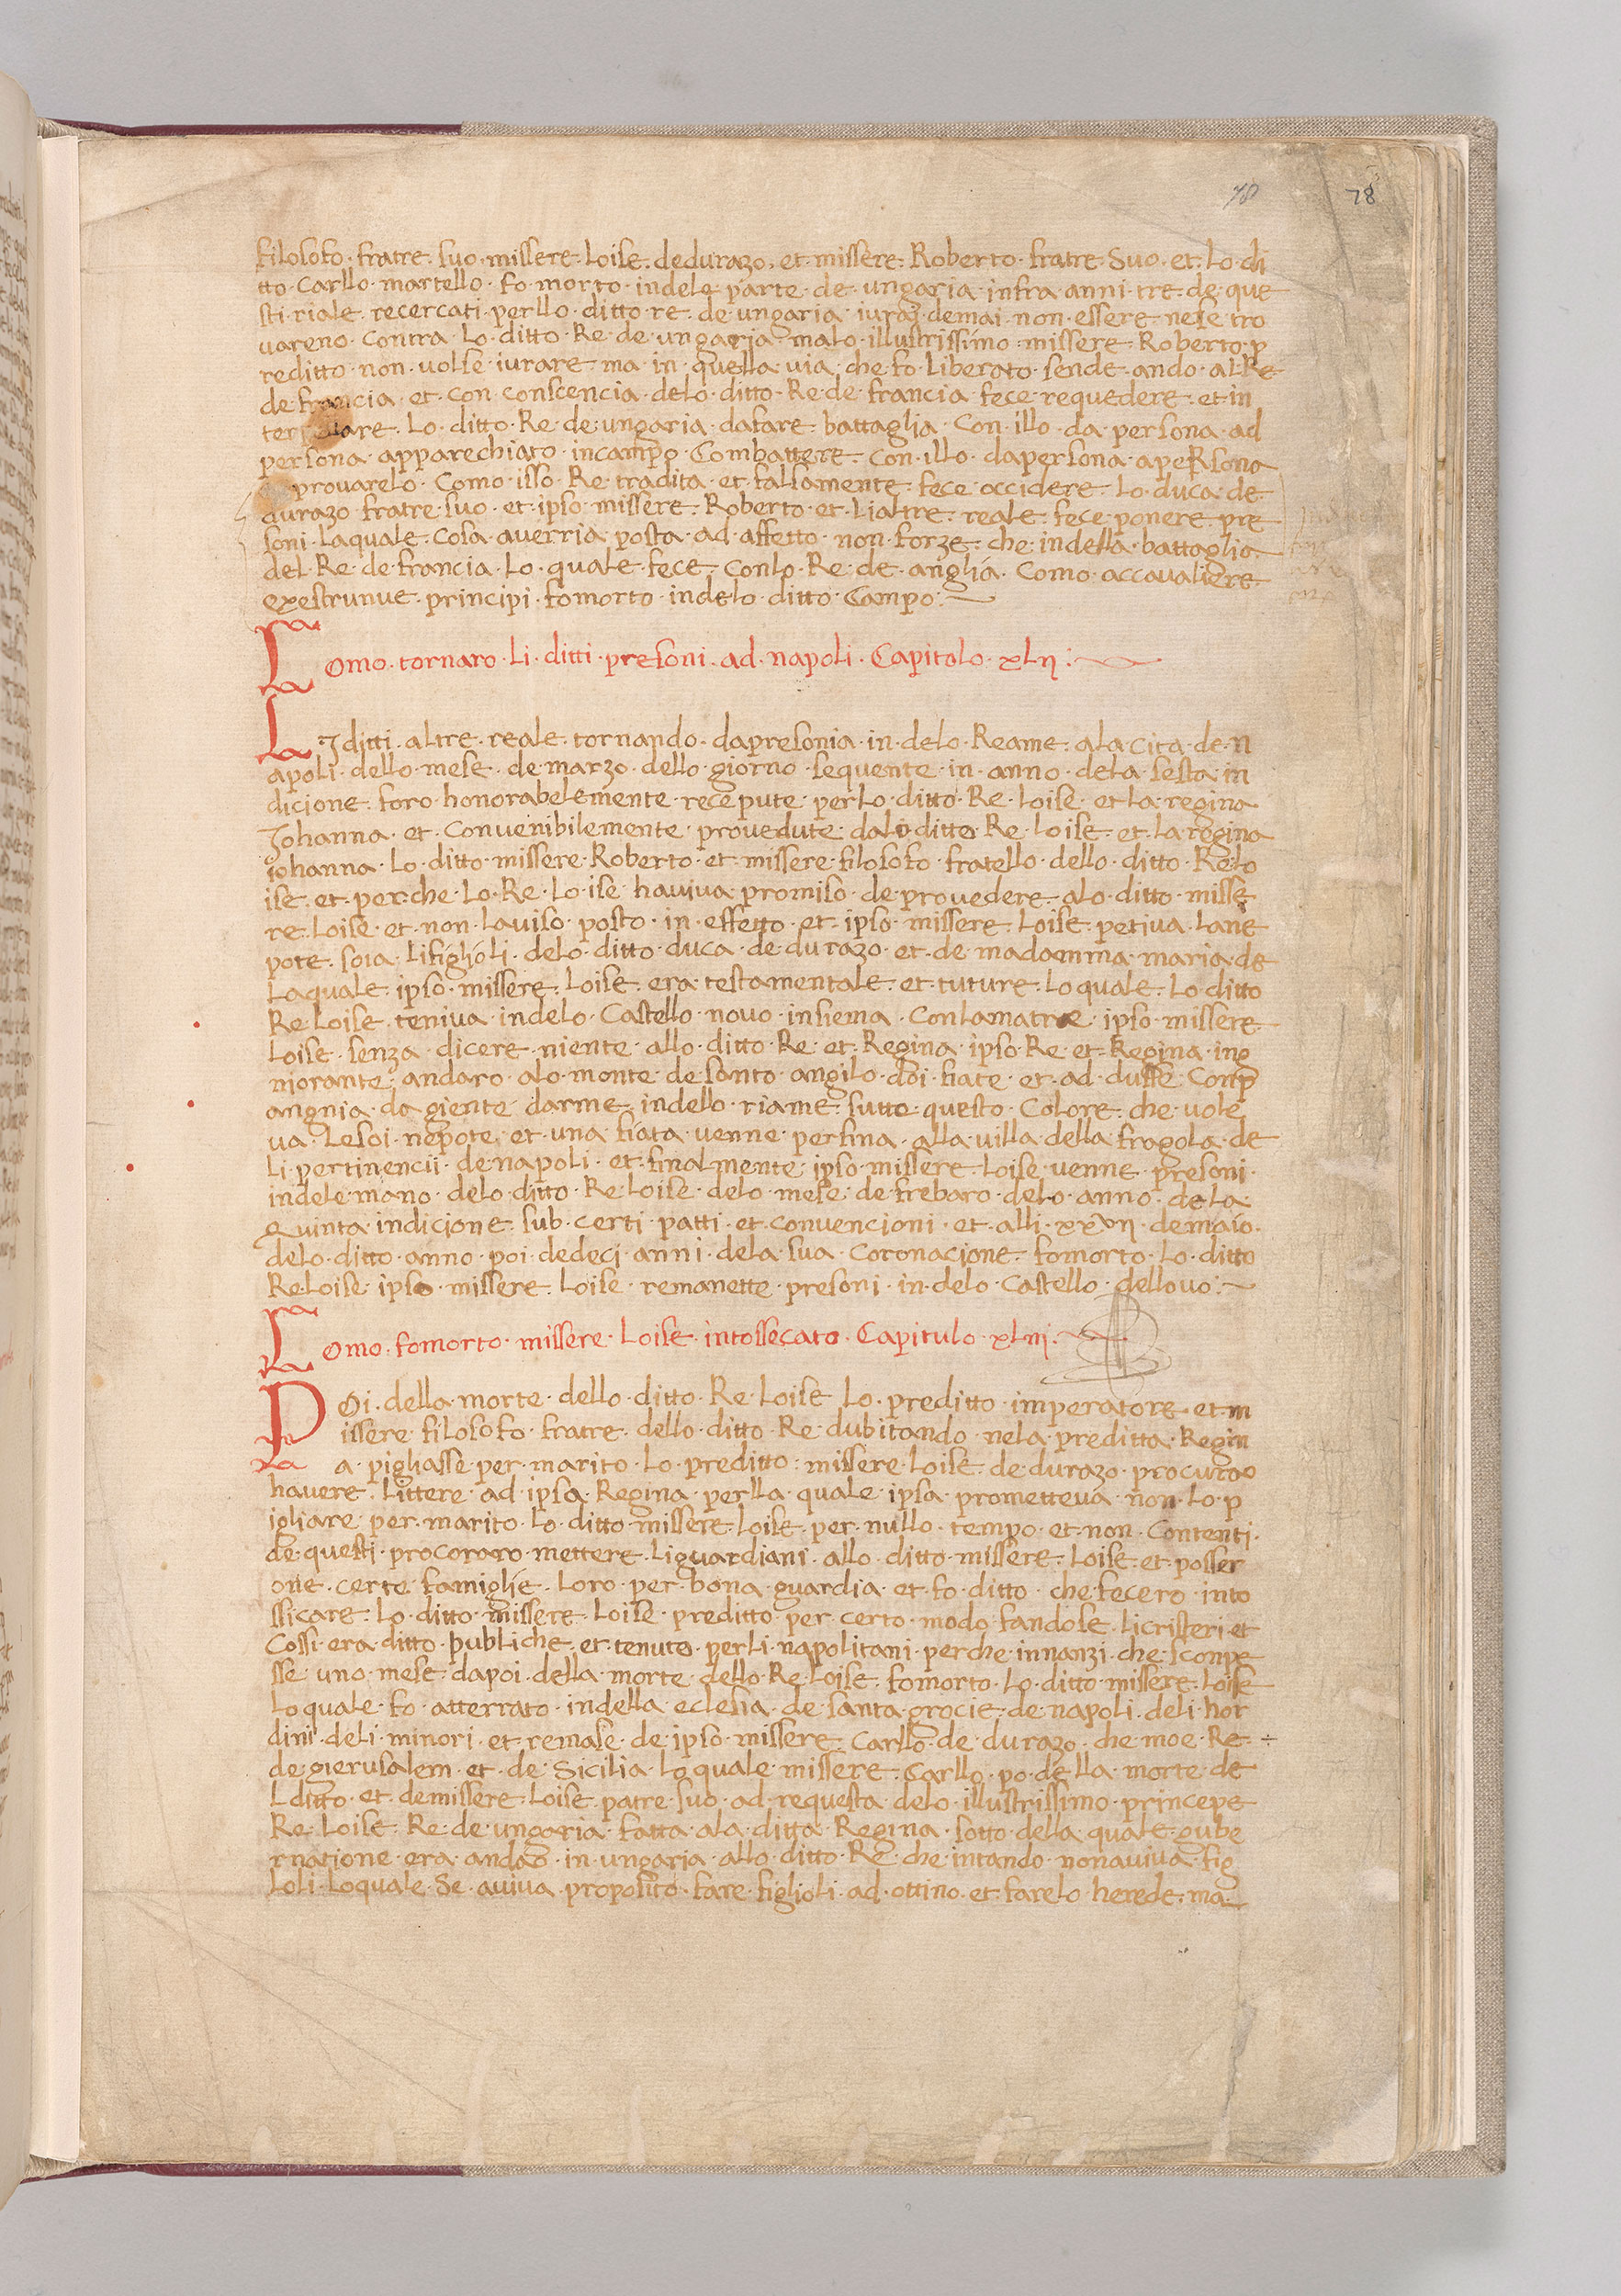 78 78
filosofo · fratre · suo · missere · loise · dedurazo · et · missere · Roberto · fratre · Suo · et · Lo · di
tto · Carllo · martello · fo · morto · indele parte · de · ungaria · infra · anni · tre · de · que
sti · riale · recercati · perllo · ditto · re · de ungaria · iuraj · demai · non · essere · nese tro
vareno · Contra · Lo · ditto · Re · de · ungaria · malo · illustrissimo · missere · Roberto · p
reditto · non · volse · iurare · ma · in · quella · via · che · fo · Liberato · sende · ando · al · Re
de francia · et · con · conscencia · delo · ditto · Re · de · francia · fece · requedere · et · in
Lo · ditto · Re · de · ungaria · dafare · battaglia · Con · illo · da · persona · ad
persona · apparechiato · incampo · Combattere · con · illo · dapersona · apeRsona
provarelo · Como · isso · Re · tradita · et · falsamente · fece · occidere · Lo · duca · de
durazo · fratre · suo · et · ipso · missere · Roberto · et · Lialtre · reale · fece · ponere · pre
soni · Laquale · Cosa · averria · posta · ad · affetto · non · forze · che · indella · battaglia
del · Re · de · francia · Lo · quale · fece · conlo · Re · de · anglia · Como · accavaliere
exestrunue · principi · fomorto · indelo · ditto · Campo :~
omo · tornaro · Li · ditti · presoni · ad · napoli · Capitolo · xlij :~
L J ditti · altre · reale · tornando · dapresonia · in · delo · Reame · ala · cita · de · n
apoli · dello · mese · de marzo · dello · giorno · sequente · in · anno · dela · sesta · in
dicione · foro · honorabelemente · recepute · perLo · ditto · Re · Loise · et La · regina
Johanna · et · Convenibilemente · provedute · dalo ditto · Re · Loise · et · la regina
johanna · Lo · ditto · missere · Roberto · et · missere · filosofo · fratello · dello · ditto · Re · lo
ise · et · perche · Lo · Re · Lo ise · haviva · promiso · de · provedere · alo · ditto · misse
re · Loise · et · non · Laviso · posto · in · effetto · et · ipso · missere · Loise · petiva · Lane
pote · soia · Lifiglioli · delo · ditto · duca · de · durazo · et · de · madamma · maria · de
Laquale · ipso · missere · Loise · era · testamentale · et · tuture · Lo quale · Lo · ditto
Re · Loise · teniva · indelo · Castello · novo · insiema · Conlamatre · ipso · missere
Loise · senza · dicere · niente · allo · ditto · Re · et · Regina · ipso · Re · et · Regina · ing
niorante · andaro · alo · monte · de santo · angilo · doi · fiate · et · ad · dusse · Comp
angnia · de · giente · darme · indello · riame · sutto · questo · Colore · che · vole
va · Lesoi · nepote · et · una · fiata · venne · perfina · alla · villa · della · fragola · de
li · pertinencii · de napoli · et · finalmente · ipso · missere · Loise · venne · presoni ·
indele · mano · delo · ditto · Re · Loise · delo · mese · de frebaro · delo · anno · de La
Quinta · indicione · sub · certi · patti · et · convencioni · et · alli · xxvij · demaio ·
delo · ditto · anno · poi · dedeci · anni · dela · sua · Coronacione · fomorto · Lo · ditto
Re · Loise · ipso · missere · Loise · remanette · presoni · in · delo · Castello · dellovo :~
omo · fomorto · missere · Loise · intossecato · Capitulo · xliij :~
P Oi · della · morte · dello · ditto · Re · Loise · Lo · preditto · imperatore · et · m
issere · filosofo · fratre · dello · ditto · Re · dubitando · nela · preditta · Regin
a · pigliasse · per · marito · Lo · preditto · missere · Loise · de durazo · procurao
havere · Littere · ad · ipsa · Regina · perlla · quale · ipsa · prometteva · non · lo · p
igliare · per · marito · Lo · ditto · missere · Loise · per · nullo · tempo · et · non · Contenti ·
de · questi · procoraro · mettere · Liguardiani · allo · ditto · missere · Loise · et · posser
one · certe · famiglie · Loro · per · bona · guardia · et · fo · ditto · che · fecero · into
ssicare · Lo · ditto · missere · Loise · preditto · per · certo · modo · fandose · Licristeri · et
Cossi · era · ditto · publiche · et · tenuto · perli · napolitani · perche · innanzi · che · scompe
sse · uno · mese · dapoi · della · morte · dello · Re · Loise · fomorto · Lo · ditto · missere · Loise
Lo quale · fo · atterrato · indella · eclesia · de · santa · grocie · de · napoli · deli · hor
dini · deli · minori · et · remase · de · ipso · missere · Carllo · de · durazo · che · moe · Re ·
de · gierusalem · et · de · Sicilia · Lo quale · missere · Carllo · po · della · morte · de
L ditto · et · demissere · Loise · patre · suo · ad · requesta · delo · illustrissimo · princepe
Re · Loise · Re · de · ungaria · fatta · ala · ditta · Regina · sotto · della · quale · gube
rnatione · era · andao · in · ungaria · allo · ditto · Re · che · intando · nonaviva · fig
Loli · Loquale · Se · aviva · proposito · fare · figlioli · ad · ottino · et · farelo · herede · ma